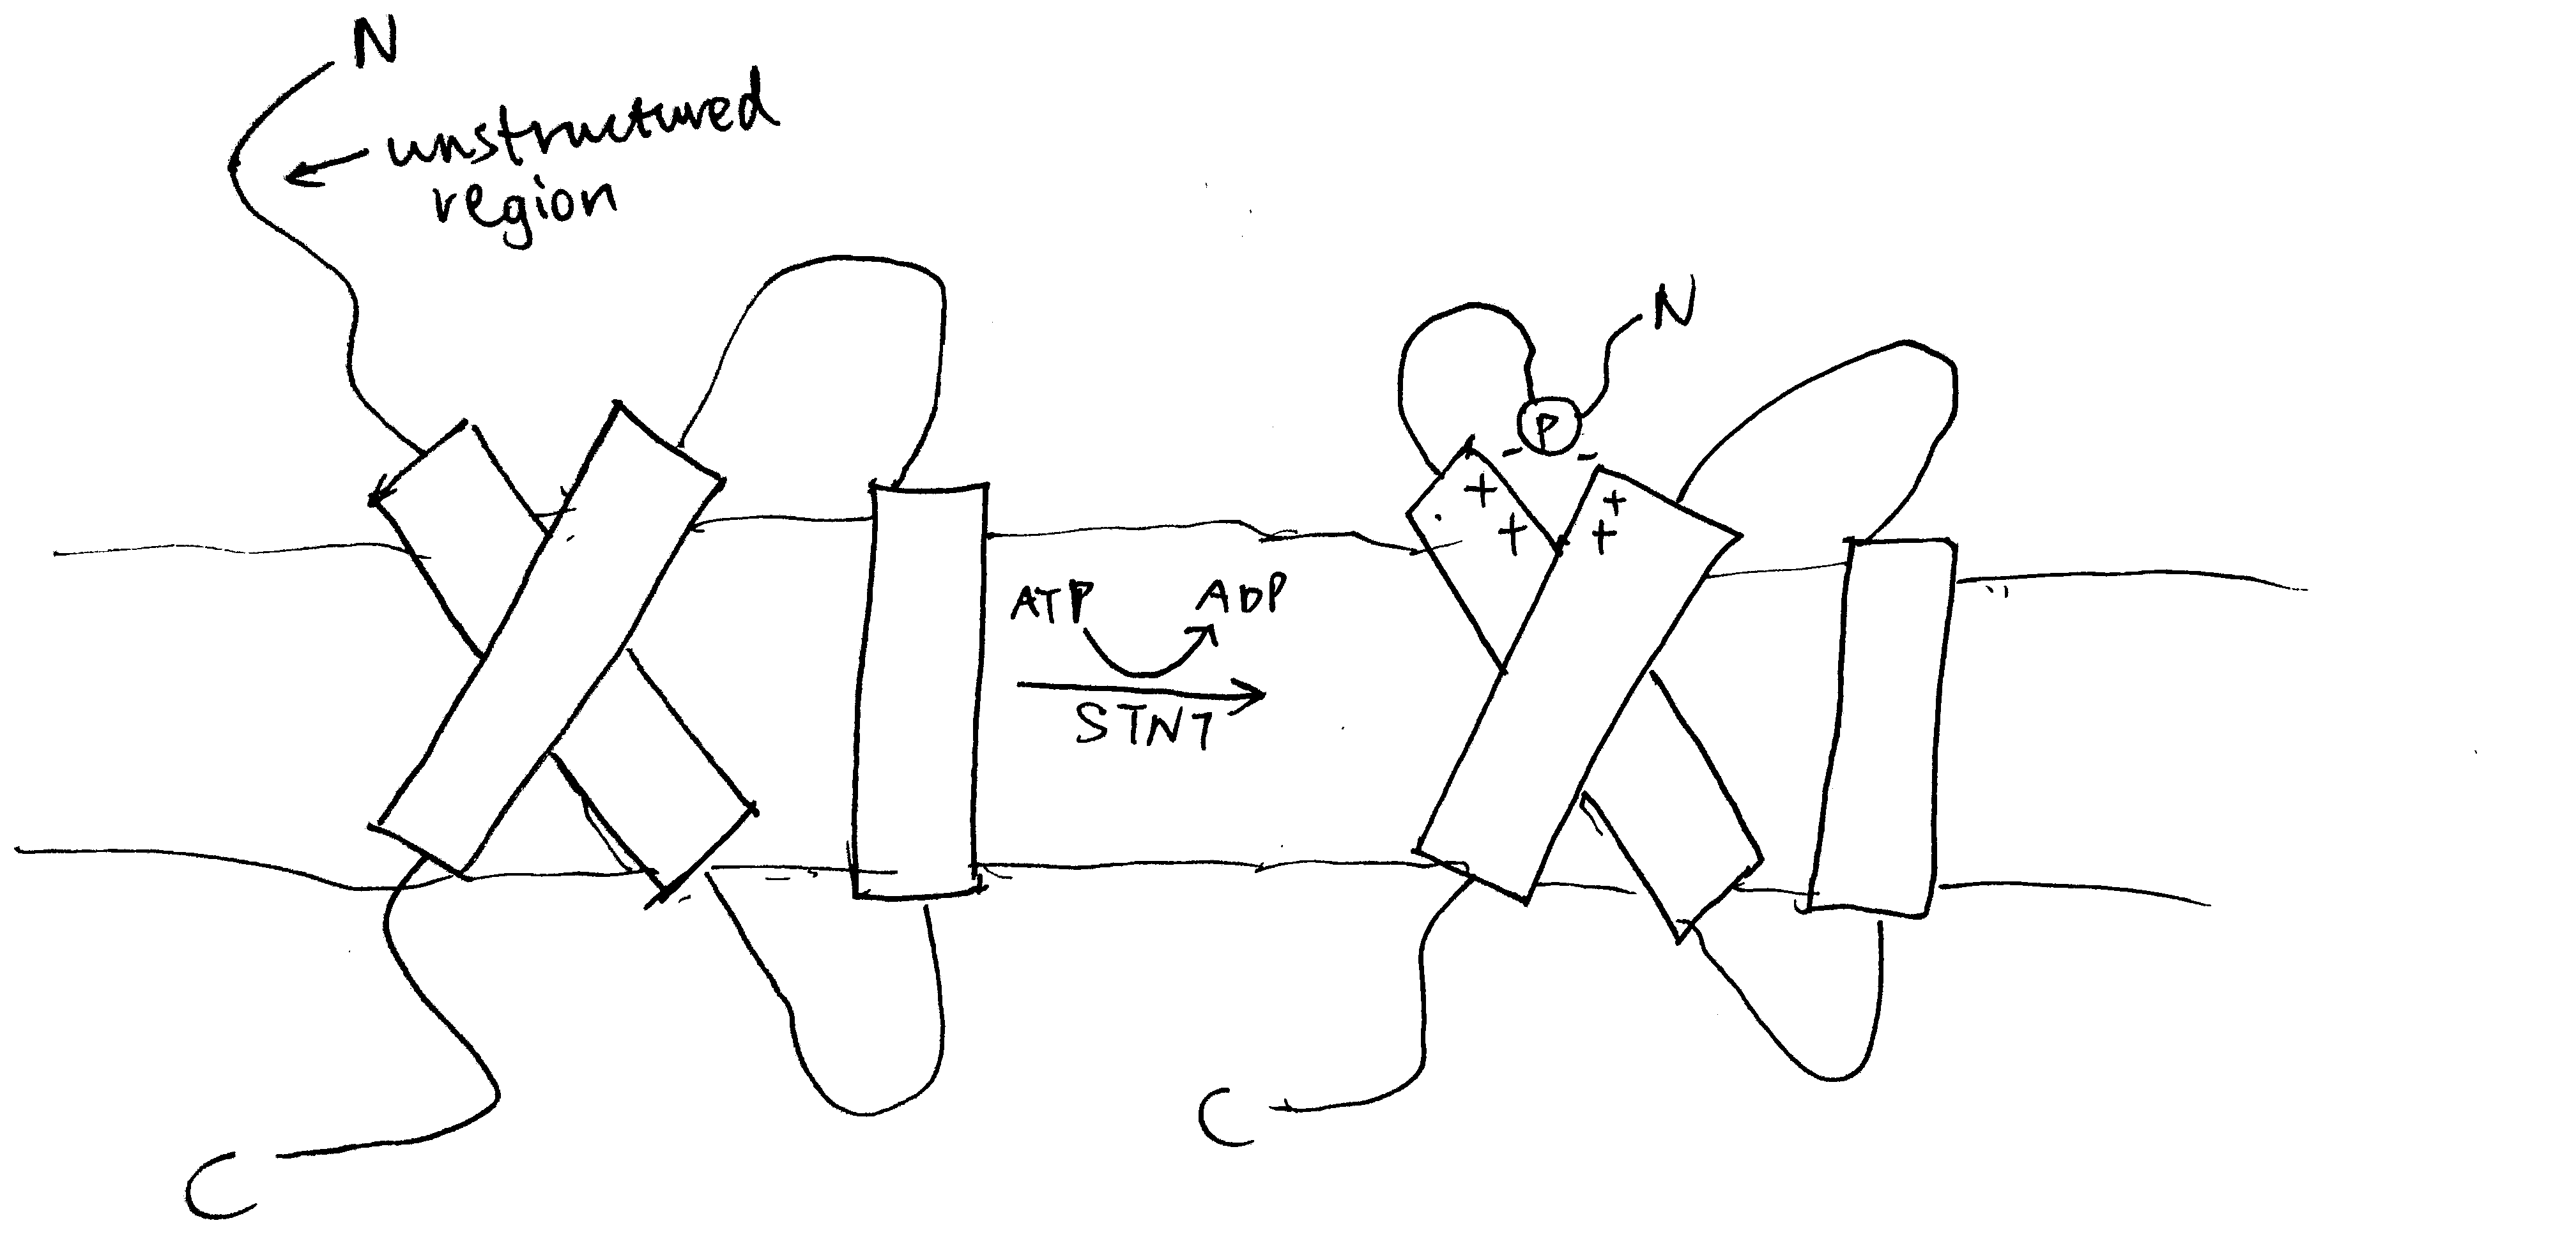 N
unstructured
region
N
P
- -
+ +
+ +
ATP ADP
STN7
C
C